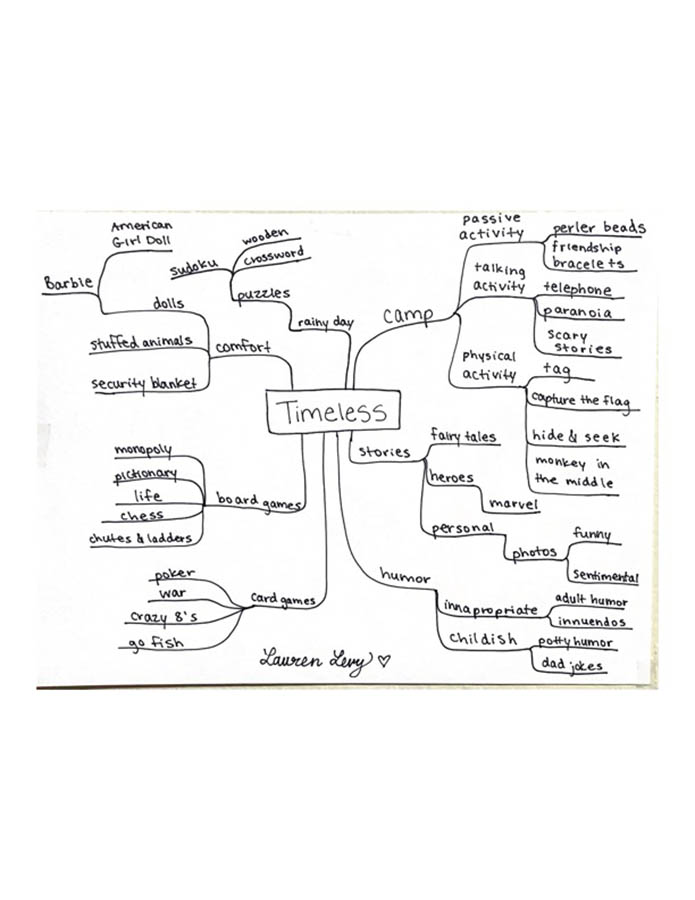 Timeless
rainy day
puzzles
wooden
crossword
sudoku
comfort
dolls
American
Girl Doll
Barbie
stuffed animals
security blanket
board games
monopoly
pictionary
life
chess
chutes & ladders
card games
poker
war
crazy 8's
go fish
camp
passive
activity
perler beads
friendship
bracelets
talking
activity
telephone
paranoia
scary
stories
physical
activity
tag
capture the flag
hide & seek
monkey in
the middle
stories
fairy tales
heroes
marvel
personal
photos
funny
sentimental
humor
innapropriate
adult humor
innuendos
childish
potty humor
dad jokes
Lauren Levy ♡